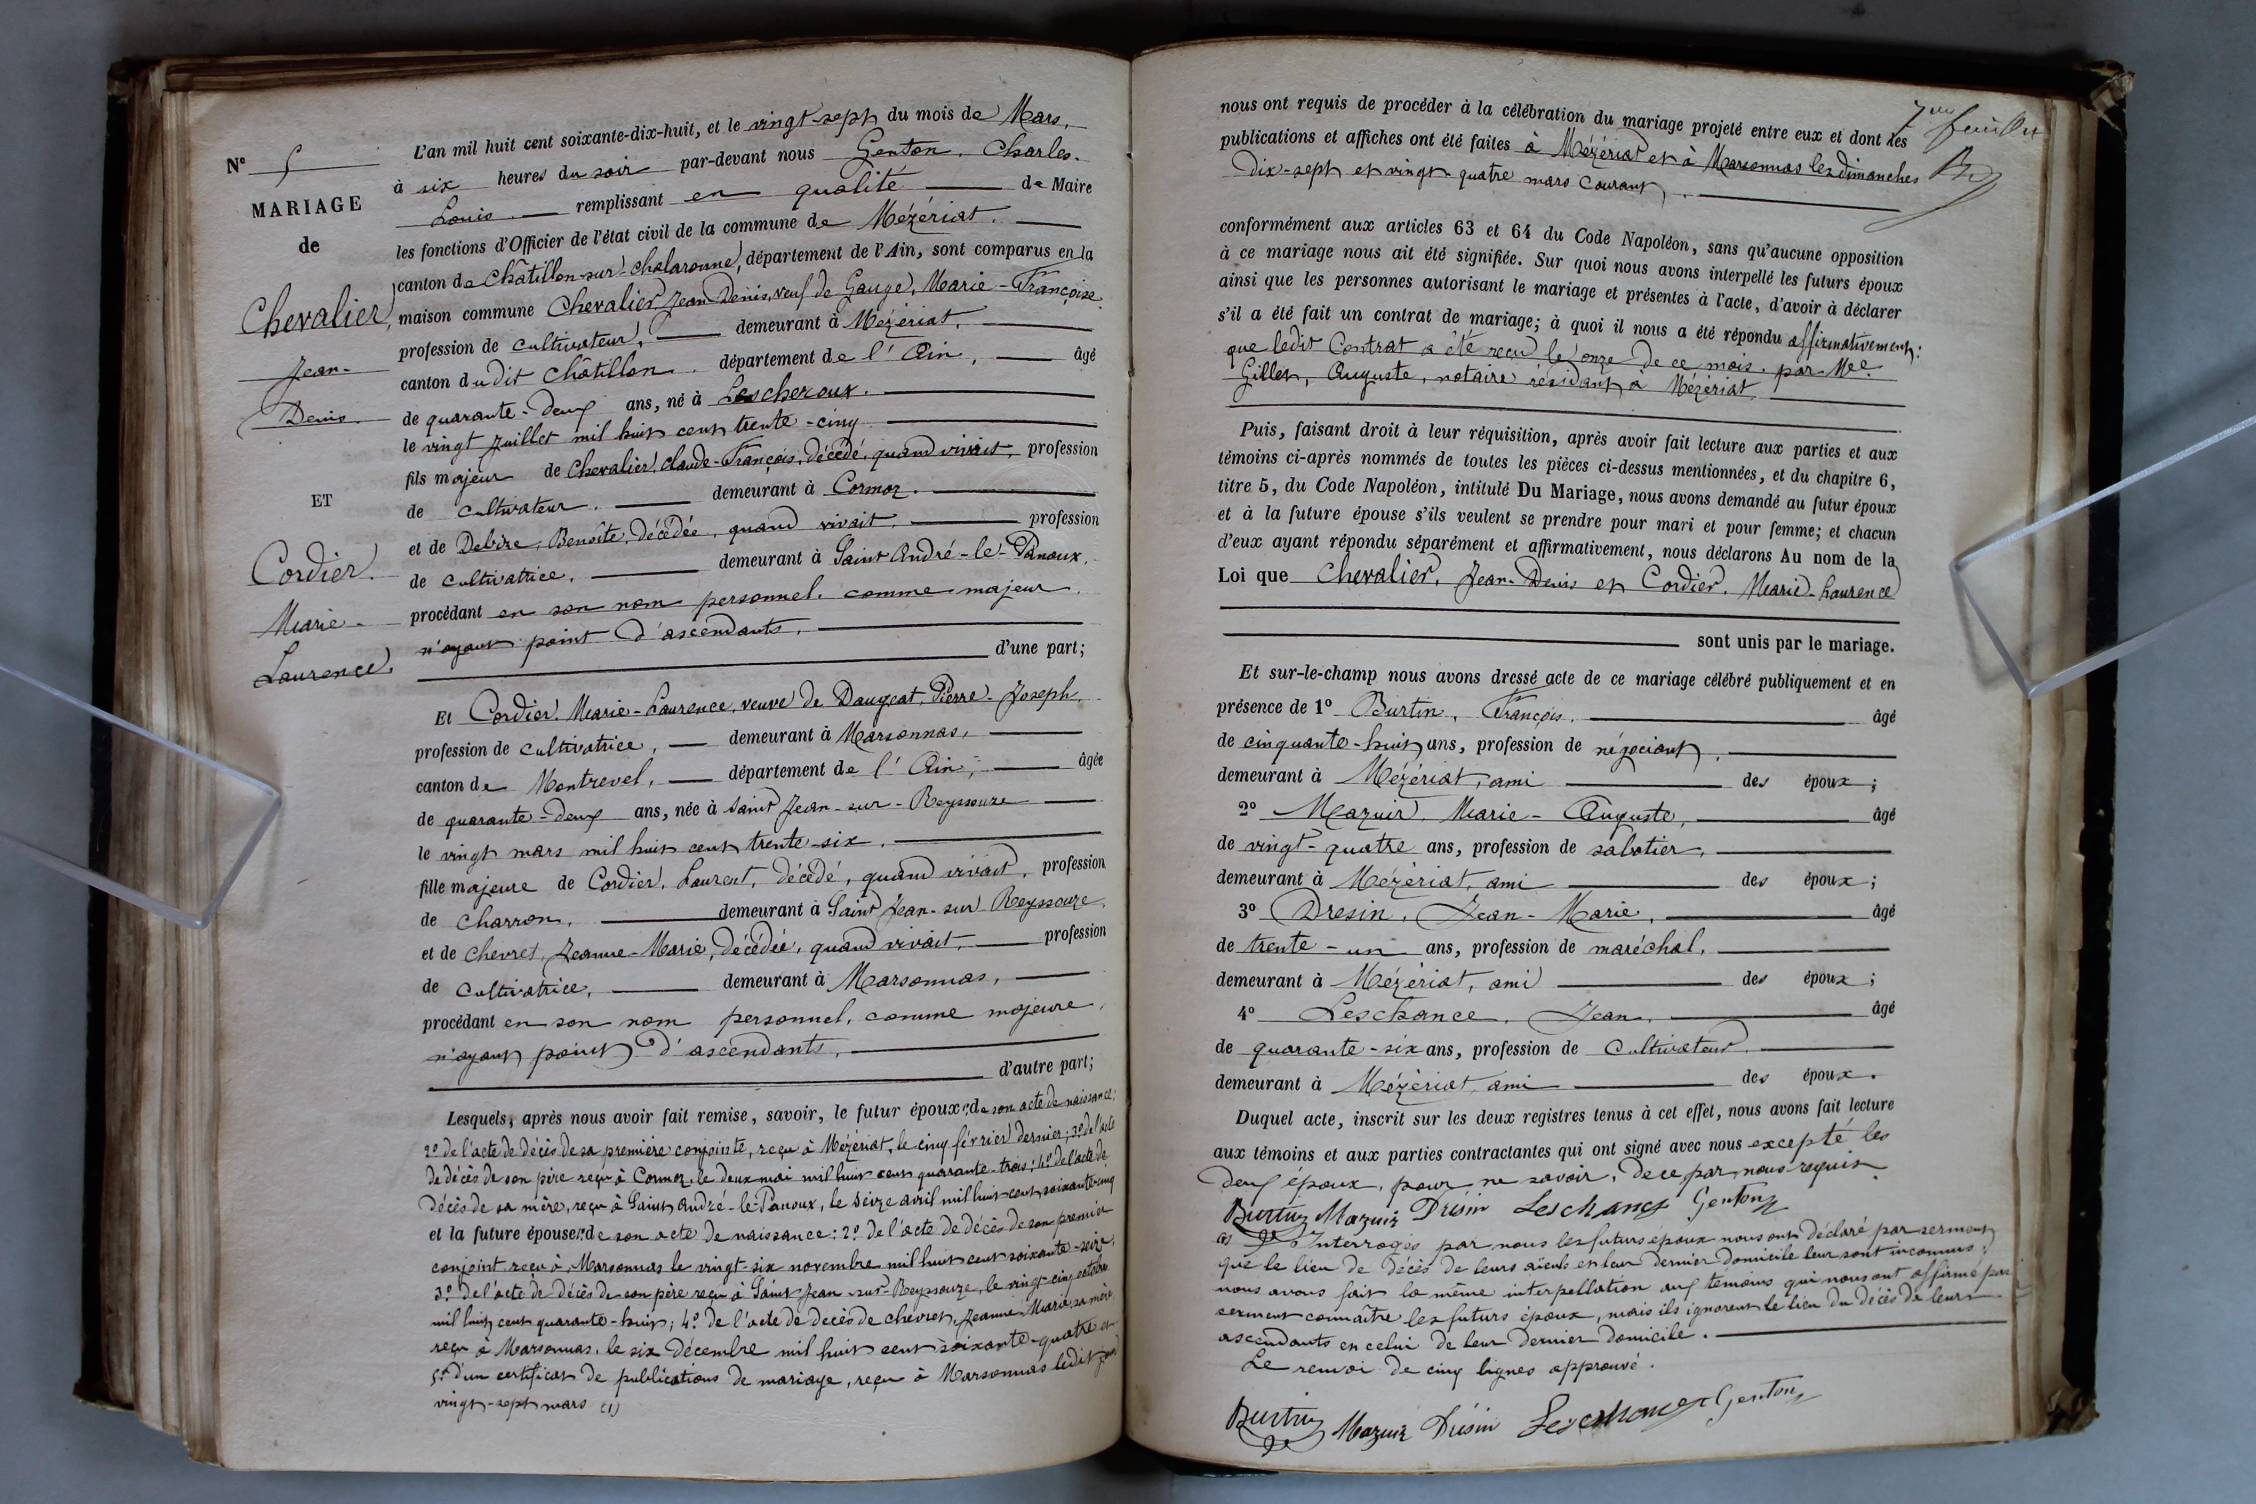 N° 5
MARIAGE
de
Chevalier,
Jean-
Denis.
ET
Cordier.
Marie-
Laurence.
L'an mil huit cent soixante-dix-huit, et le vingt-sept du mois de Mars,
à six heures du soir par-devant nous Genton, Charles-
Louis. remplissant en qualité de Maire
les fonctions d'Officier de l'état civil de la commune de Mézériat.
canton de Châtillon-sur-Chalaronne, département de l'Ain, sont comparus en la
maison commune Chevalier, Jean Denis, veuf de Gauge, Marie-Françoise.
profession de cultivateur, demeurant à Mézériat,
canton dudit Châtillon. département de l'Ain, âgé
de quarante-deux ans, né à Lescheroux.
le vingt Juillet mil huit cent trente-cinq
fils majeur de Chevalier, Claude-François, décédé, quand vivait, profession
de cultivateur. demeurant à Cormoz.
et de Debize, Benoîte, décédée, quand vivait, profession
de cultivatrice, demeurant à Saint André-le-Panoux.
procédant en son nom personnel, comme majeur.
n'ayant point d'ascendants, d'une part;
Et Cordier, Marie-Laurence, veuve de Daujeat, Pierre-Joseph,
profession de cultivatrice, demeurant à Marsonnas,
canton de Montrevel, département de l'Ain, âgée
de quarante-deux ans, née à Saint Jean-sur-Reyssouze
le vingt mars mil huit cent trente-six,
fille majeure de Cordier, Laurent, décédé, quand vivait, profession
de charron, demeurant à Saint Jean-sur Reyssouze,
et de Chevret, Jeanne-Marie, décédée, quand vivait, profession
de cultivatrice, demeurant à Marsonnas,
procédant en son nom personnel, comme majeure,
n'ayant point d'ascendants, d'autre part;
Lesquels, après nous avoir fait remise, savoir, le futur époux: de son acte de naissance;
2° de l'acte de décès de sa première conjointe, reçu à Mézériat, le cinq février dernier; 3° de l'acte
de décès de son père reçu à Cormoz, le deux mai mil huit cent quarante-trois; 4° de l'acte de
décès de sa mère, reçu à Saint André-le-Panoux, le seize avril mil huit cent soixante-cinq
et la future épouse: de son acte de naissance: 2° de l'acte de décès de son premier
conjoint reçu à Marsonnas le vingt-six novembre mil huit cent soixante-seize,
3° de l'acte de décès de son père reçu à Saint Jean-sur-Reyssouze, le vingt-cinq octobre
mil huit cent quarante-huit; 4° de l'acte de décès de Chevret, Jeanne-Marie, sa mère
reçu à Marsonnas, le six décembre mil huit cent soixante-quatre et
5° d'un certificat de publications de mariage, reçu à Marsonnas ledit jour
vingt-sept mars (1)
7me feuillet
nous ont requis de procéder à la célébration du mariage projeté entre eux et dont les
publications et affiches ont été faites à Mézériat et à Marsonnas les dimanches
dix-sept et vingt-quatre mars courant.
conformément aux articles 63 et 64 du Code Napoléon, sans qu'aucune opposition
à ce mariage nous ait été signifiée. Sur quoi nous avons interpellé les futurs époux
ainsi que les personnes autorisant le mariage et présentes à l'acte, d'avoir à déclarer
s'il a été fait un contrat de mariage; à quoi il nous a été répondu affirmativement:
que ledit Contrat a été reçu le onze de ce mois par Me.
Gillet, Auguste, notaire résidant à Mézériat
Puis, faisant droit à leur réquisition, après avoir fait lecture aux parties et aux
témoins ci-après nommés de toutes les pièces ci-dessus mentionnées, et du chapitre 6,
titre 5, du Code Napoléon, intitulé Du Mariage, nous avons demandé au futur époux
et à la future épouse s'ils veulent se prendre pour mari et pour femme; et chacun
d'eux ayant répondu séparément et affirmativement, nous déclarons Au nom de la
Loi que Chevalier, Jean-Denis et Cordier, Marie-Laurence
sont unis par le mariage.
Et sur-le-champ nous avons dressé acte de ce mariage célébré publiquement et en
présence de 1° Burtin, François, âgé
de cinquante-huit ans, profession de négociant,
demeurant à Mézériat, ami des époux;
2° Mazuir, Marie-Auguste, âgé
de vingt-quatre ans, profession de sabotier,
demeurant à Mézériat, ami des époux;
3° Dresin, Jean-Marie, âgé
de trente-un ans, profession de maréchal,
demeurant à Mézériat, ami des époux;
4° Leschance, Jean, âgé
de quarante-six ans, profession de cultivateur.
demeurant à Mézériat, ami des époux.
Duquel acte, inscrit sur les deux registres tenus à cet effet, nous avons fait lecture
aux témoins et aux parties contractantes qui ont signé avec nous excepté les
deux époux, pour ne savoir, de ce par nous requis.
Burtin Mazuir Drésin Leschance Genton
(1) Interrogés par nous les futurs époux nous ont déclaré par serment
que le lieu de décès de leurs aïeuls et leur dernier domicile leur sont inconnus;
nous avons fait la même interpellation aux témoins qui nous ont affirmé par
serment connaître les futurs époux, mais ils ignorent le lieu du décès de leurs
ascendants et celui de leur dernier domicile.
Le renvoi de cinq lignes approuvé.
Burtin Mazuir Drésin Leschance Genton